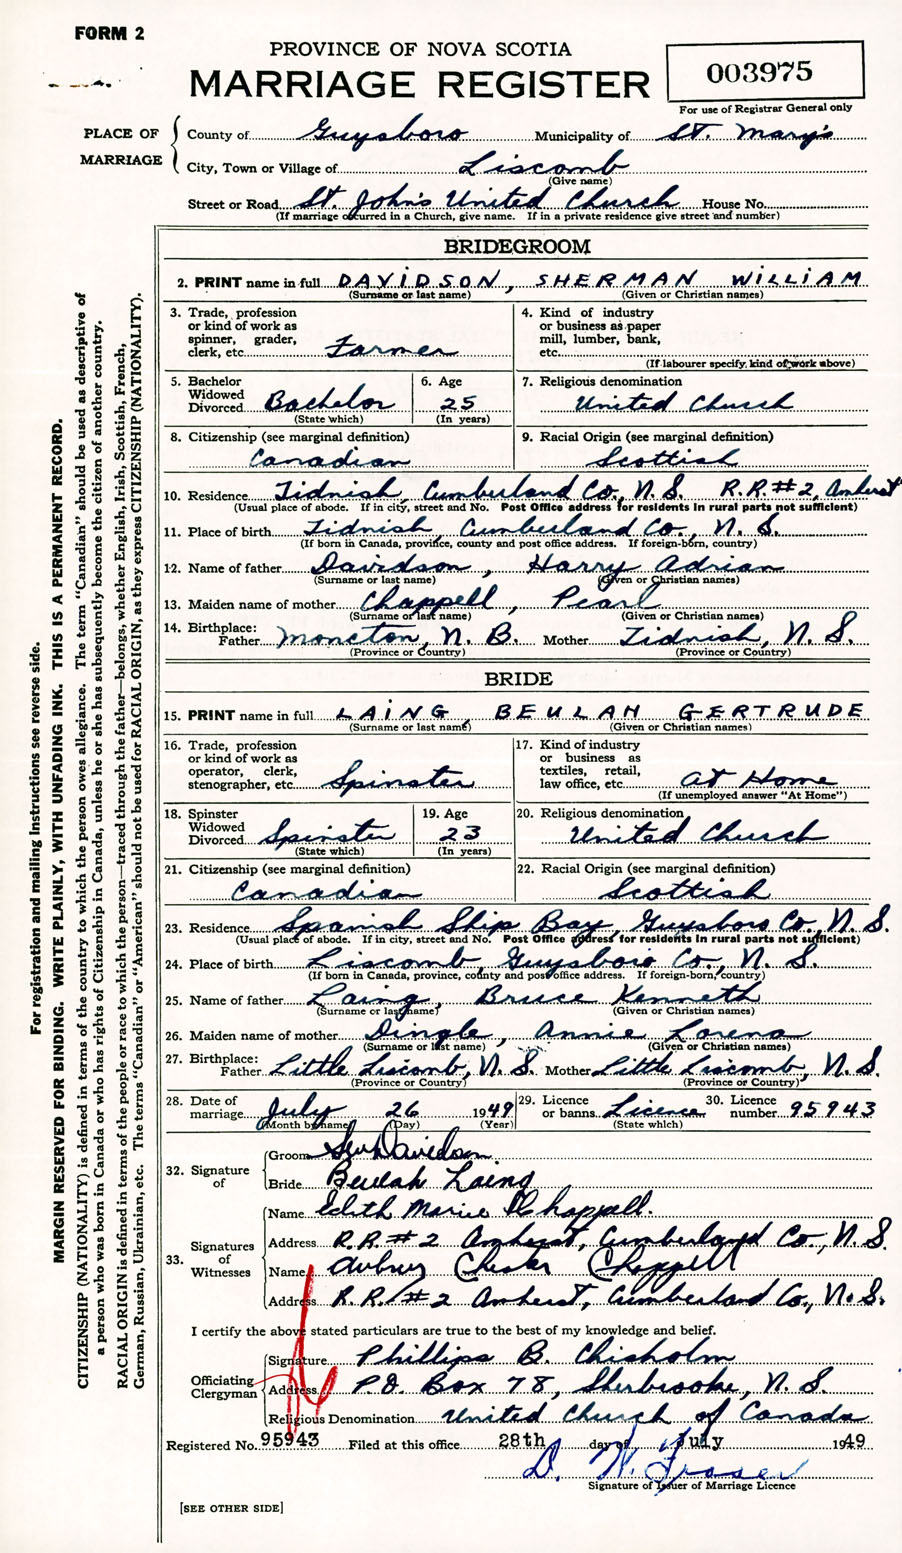 FORM 2
PROVINCE OF NOVA SCOTIA
MARRIAGE REGISTER
003975
For use of Registrar General only
PLACE OF MARRIAGE
County of Guysboro Municipality of St. Mary's
City, Town or Village of Liscomb
(Give name)
Street or Road St. John's United Church House No.
(If marriage occurred in a Church, give name. If in a private residence give street and number)
BRIDEGROOM
2. PRINT name in full DAVIDSON, SHERMAN WILLIAM
(Surname or last name) (Given or Christian names)
3. Trade, profession or kind of work as spinner, grader, clerk, etc. Farmer
4. Kind of industry or business as paper mill, lumber, bank, etc.
(If labourer specify kind of work above)
5. Bachelor Widowed Divorced Bachelor
(State which)
6. Age 25
(In years)
7. Religious denomination
United Church
8. Citizenship (see marginal definition)
Canadian
9. Racial Origin (see marginal definition)
Scottish
10. Residence Tidnish, Cumberland Co., N.S. R.R.#2, Amherst
(Usual place of abode. If in city, street and No. Post Office address for residents in rural parts not sufficient)
11. Place of birth Tidnish, Cumberland Co., N.S.
(If born in Canada, province, county and post office address. If foreign-born, country)
12. Name of father Davidson, Harry Adrian
(Surname or last name) (Given or Christian names)
13. Maiden name of mother Chappell, Pearl
(Surname or last name) (Given or Christian names)
14. Birthplace: Father Moncton, N.B. Mother Tidnish, N.S.
(Province or Country) (Province or Country)
BRIDE
15. PRINT name in full LAING, BEULAH GERTRUDE
(Surname or last name) (Given or Christian names)
16. Trade, profession or kind of work as operator, clerk, stenographer, etc. Spinster
17. Kind of industry or business as textiles, retail, law office, etc. At Home
(If unemployed answer "At Home")
18. Spinster Widowed Divorced Spinster
(State which)
19. Age 23
(In years)
20. Religious denomination
United Church
21. Citizenship (see marginal definition)
Canadian
22. Racial Origin (see marginal definition)
Scottish
23. Residence Spanish Ship Bay, Guysboro Co., N.S.
(Usual place of abode. If in city, street and No. Post Office address for residents in rural parts not sufficient)
24. Place of birth Liscomb, Guysboro Co., N.S.
(If born in Canada, province, county and post office address. If foreign-born, country)
25. Name of father Laing, Bruce Kenneth
(Surname or last name) (Given or Christian names)
26. Maiden name of mother Dingle, Annie Lorena
(Surname or last name) (Given or Christian names)
27. Birthplace: Father Little Liscomb, N.S. Mother Little Liscomb, N.S.
(Province or Country) (Province or Country)
28. Date of marriage July 26 1949
(Month by name) (Day) (Year)
29. Licence or banns Licence
(State which)
30. Licence number 95943
32. Signature of
Groom Davidson
Bride Beulah Laing
33. Signatures of Witnesses
Name Edith Marie Chappell.
Address R.R.#2 Amherst, Cumberland Co., N.S.
Name Aubrey Chester Chappell
Address R.R.#2 Amherst, Cumberland Co., N.S.
I certify the above stated particulars are true to the best of my knowledge and belief.
Officiating Clergyman
Signature Phillips B. Chisholm
Address P.O. Box 78, Sherbrooke, N.S.
Religious Denomination United Church of Canada
Registered No. 95943 Filed at this office 28th day of July 1949
D. W. Fraser
Signature of Issuer of Marriage Licence
[SEE OTHER SIDE]
For registration and mailing instructions see reverse side.
MARGIN RESERVED FOR BINDING. WRITE PLAINLY, WITH UNFADING INK. THIS IS A PERMANENT RECORD.
CITIZENSHIP (NATIONALITY) is defined in terms of the country to which the person owes allegiance. The term "Canadian" should be used as descriptive of
a person who was born in Canada or who has rights of Citizenship in Canada, unless he or she has subsequently become the citizen of another country.
RACIAL ORIGIN is defined in terms of the people or race to which the person—traced through the father—belongs, whether English, Irish, Scottish, French,
German, Russian, Ukrainian, etc. The terms "Canadian" or "American" should not be used for RACIAL ORIGIN, as they express CITIZENSHIP (NATIONALITY).